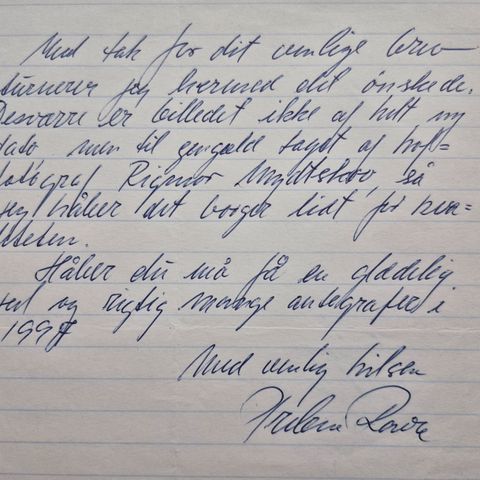 Med tak for dit venlige brev
turnerer jeg hermed det ønskede.
Desværre er billedet ikke af helt ny
dato, men til gengæld taget af hof=
fotograf Rigmor Mydtskov, så
jeg håber det borger lidt for kva=
liteten.
Håber du må få en glædelig
jul og rigtig mange autografer i
1997
Med venlig hilsen